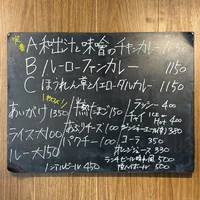 定番
A 和出汁と味噌のチキンカレー 1150
B ルーローファンカレー 1150
C ほうれん草とイエローダルカレー 1150
あいがけ 1350
ライス大 100
ルー大 150
熟たまご 150
チーズ 100
パクチー 100
ノンアルビール 450
ラッシー 400
チャイ ICE
HOT 400
ジンジャーエール(辛) 380
コーラ 350
オレンジジュース 330
500
500